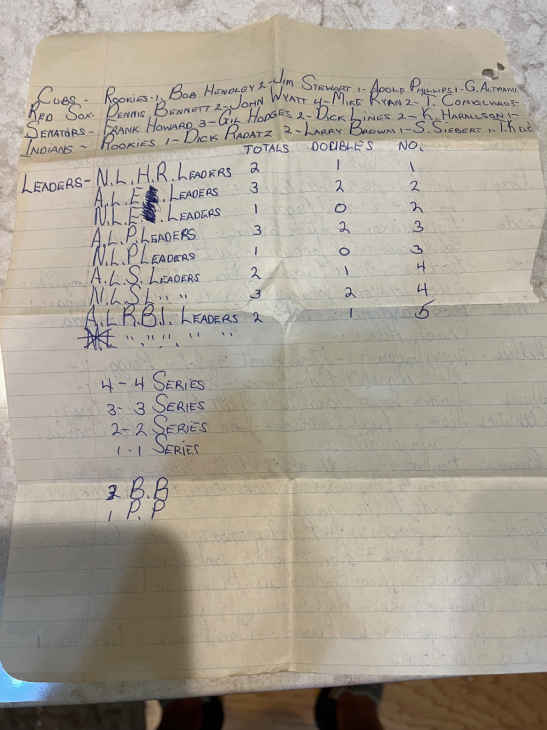 Cubs - Rookies - 1, Bob Hendley 2 - Jim Stewart 1 - Adolfo Phillips 1 - G. Altman 1
Red Sox - Dennis Bennett 2 - John Wyatt 4 - Mike Ryan 2 - T. Conigliaro 5
Senators - Frank Howard 3 - Gil Hodges 2 - Dick Lines 2 - K. Harrelson 1 -
Indians - Rookies 1 - Dick Radatz 2 - Larry Brown 1 - S. Siebert 1,
TOTALS DOUBLES NO.
Leaders - N.L.H.R. Leaders 2 1 1
A.L.E. Leaders 3 2 2
N.L.E. Leaders 1 0 2
A.L.P. Leaders 3 2 3
N.L.P. Leaders 1 0 3
A.L.S. Leaders 2 1 4
N.L.S. " " 3 2 4
A.L.R.B.I. Leaders 2 1 5
" " " " " "
4 - 4 Series
3 - 3 Series
2 - 2 Series
1 - 1 Series
2 B.B
1 P.P